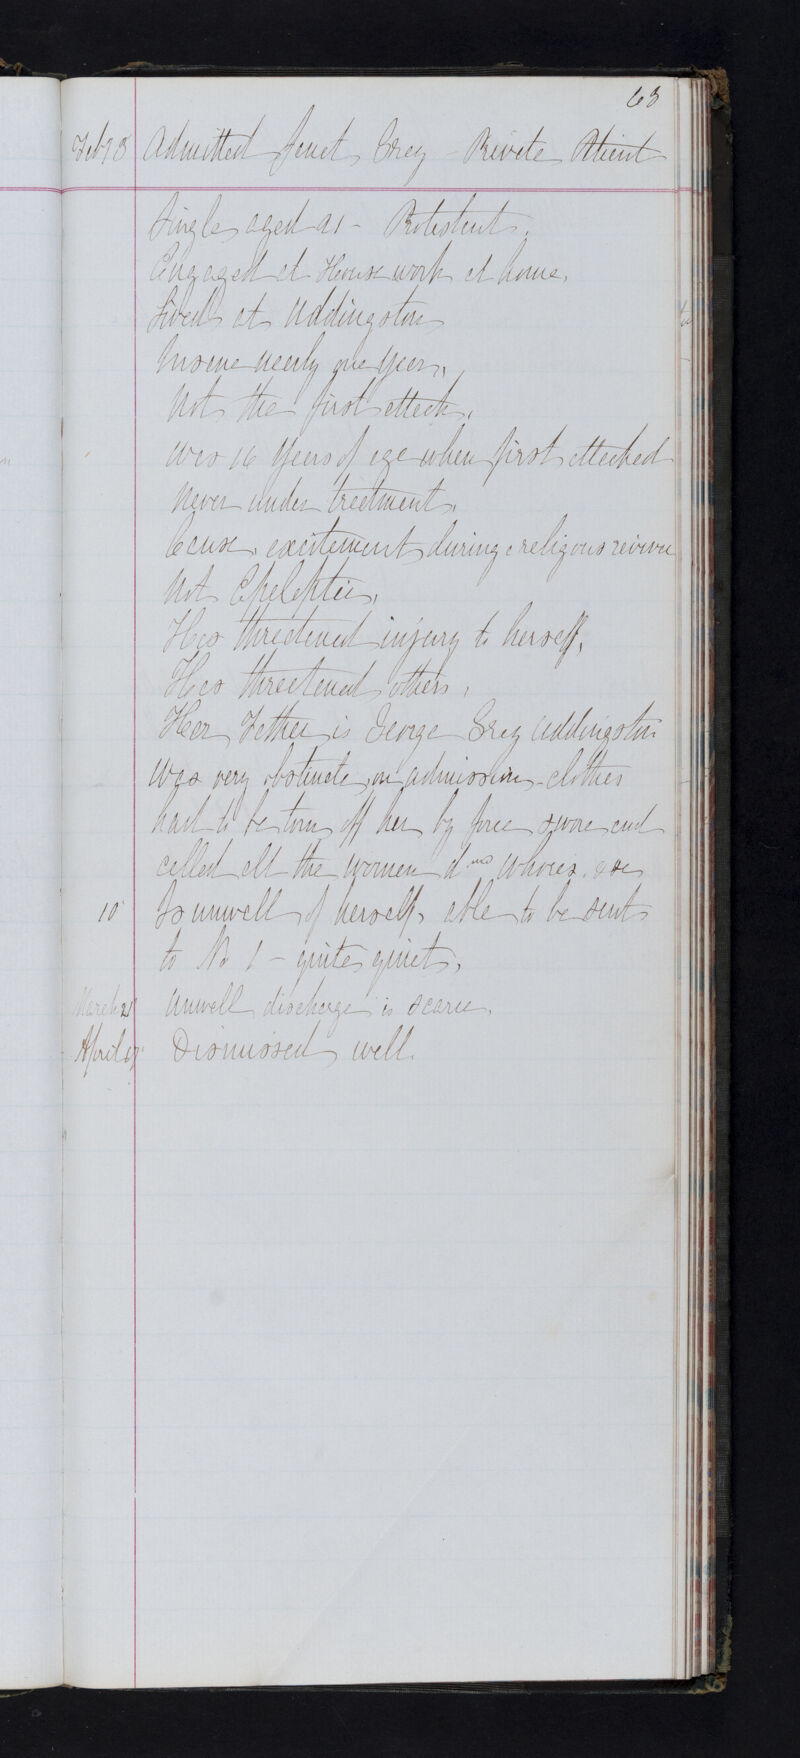 63
Feby 8 Admitted Janet Gray - Private Patient
Single aged 21 - Protestant.
Engaged at House work at home.
Lived at Uddingston
Insane nearly one year.
Not the first attack.
Was 16 Years of age when first attacked
Never under treatment.
Cause, excitement during a religous revival
Not Epeleptic.
Has threatened injury to herself.
Has threatened others.
Her Father is George Gray Uddingston
Was very obstinate on admission - clothes
had to be torn off her by force swore and
called all the women d--- whores. &c
10 Is unwell of herself, able to be sent
to No 1 - quite quiet.
March 21 Unwell discharge is scarce.
April 17 Dismissed well.